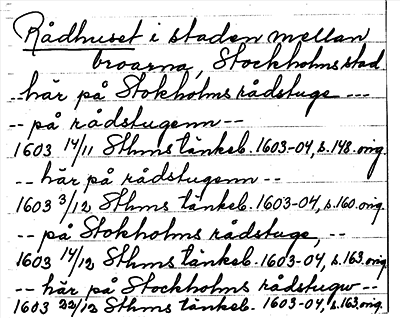 Rådhuset i staden mellan
broarna, Stockholms stad
-- här på Stokholms rådstuge ---
-- på rådstugenn --
1603 14/11 Sthms tänkeb. 1603-04, s. 148. orig.
-- här på rådstugenn --
1603 3/12 Sthms tänkeb. 1603-04, s. 160. orig.
-- på Stokholms rådstuge, --
1603 14/12 Sthms tänkeb. 1603-04, s. 163. orig.
-- här på Stockholms rådstugw --
1603 22/12 Sthms tänkeb. 1603-04, s. 163. orig.